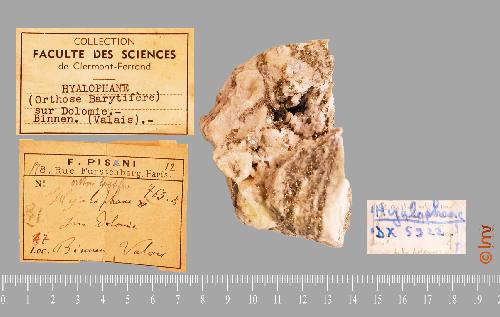 COLLECTION
FACULTE DES SCIENCES
de Clermont-Ferrand
HYALOPHANE
(Orthose Barytifère)
sur Dolomie.-
Binnen. (Valais).-
F. PISANI
8, Rue Furstenberg, Paris.
12
N:
Hyalophane
sur Dolomie
Loc. Binnen, Valais
Hyalophane
DX 5922
© lmv
0 1 2 3 4 5 6 7 8 9 10 11 12 13 14 15 16 17 18 19